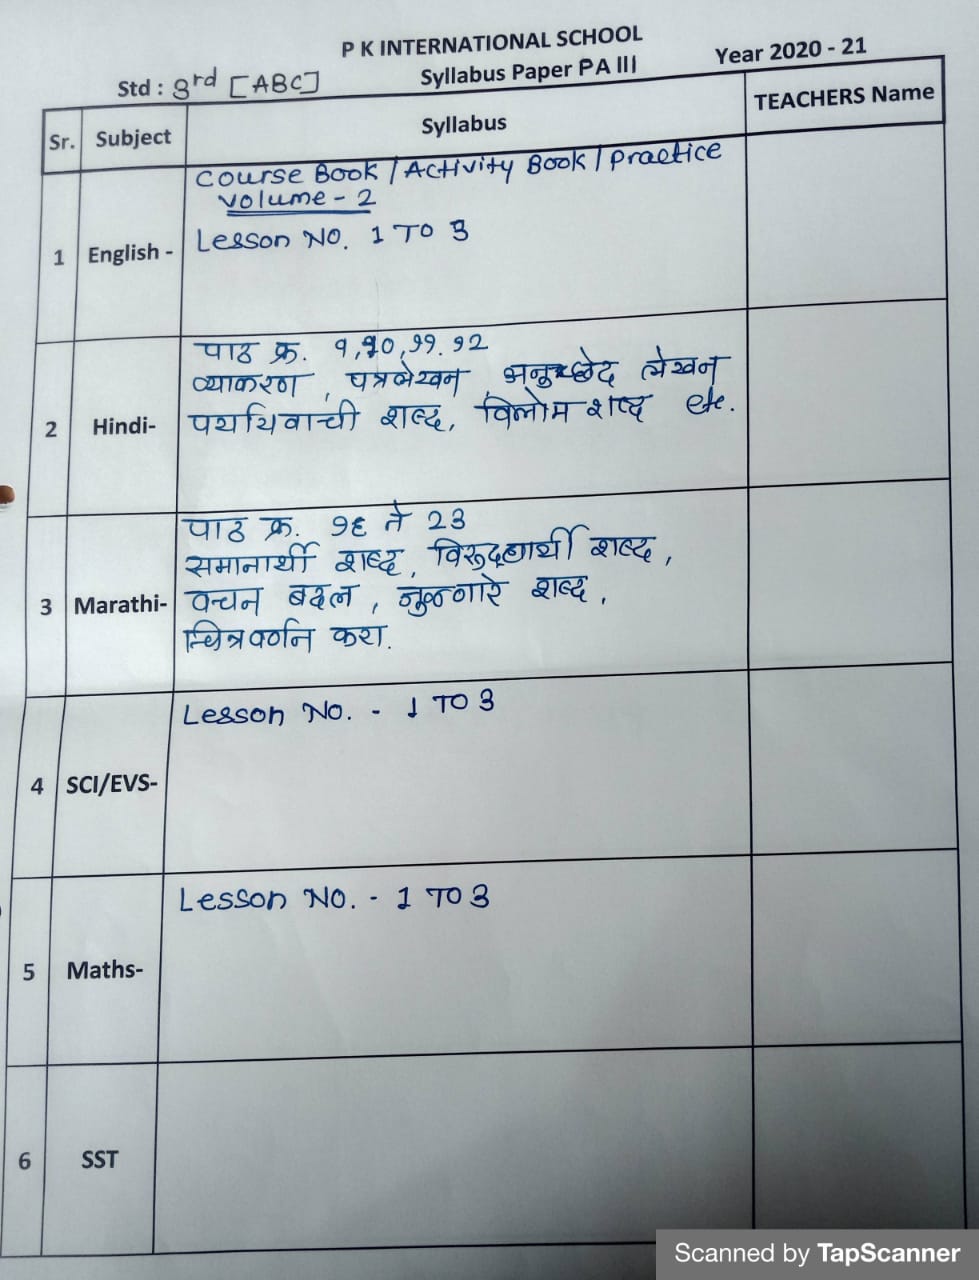 P K INTERNATIONAL SCHOOL
Std : 3rd [ABC] Syllabus Paper PA III Year 2020 - 21
Sr. Subject Syllabus TEACHERS Name
Course Book / Activity Book / Practice
Volume - 2
1 English - Lesson No. 1 TO 3
पाठ क्र. १,१०,११.१२
व्याकरण , पत्रलेखन , अनुच्छेद लेखन
2 Hindi- पर्यायवाची शब्द, विलोम शब्द etc.
पाठ क्र. १६ ते 23
समानार्थी शब्द, विरुद्धार्थी शब्द,
3 Marathi- वचन बदल , जुळणारे शब्द,
चित्रवर्णन करा.
Lesson No. - 1 TO 3
4 SCI/EVS-
Lesson No. - 1 TO 3
5 Maths-
6 SST
Scanned by TapScanner